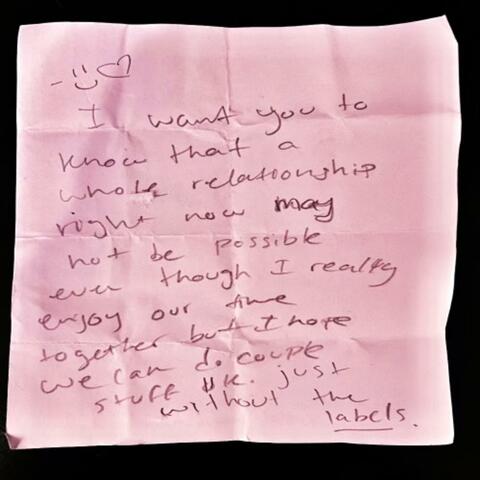 - :) ♡
I want you to
know that a
whole relationship
right now may
not be possible
even though I really
enjoy our time
together but I hope
we can do couple
stuff just
without the
labels.